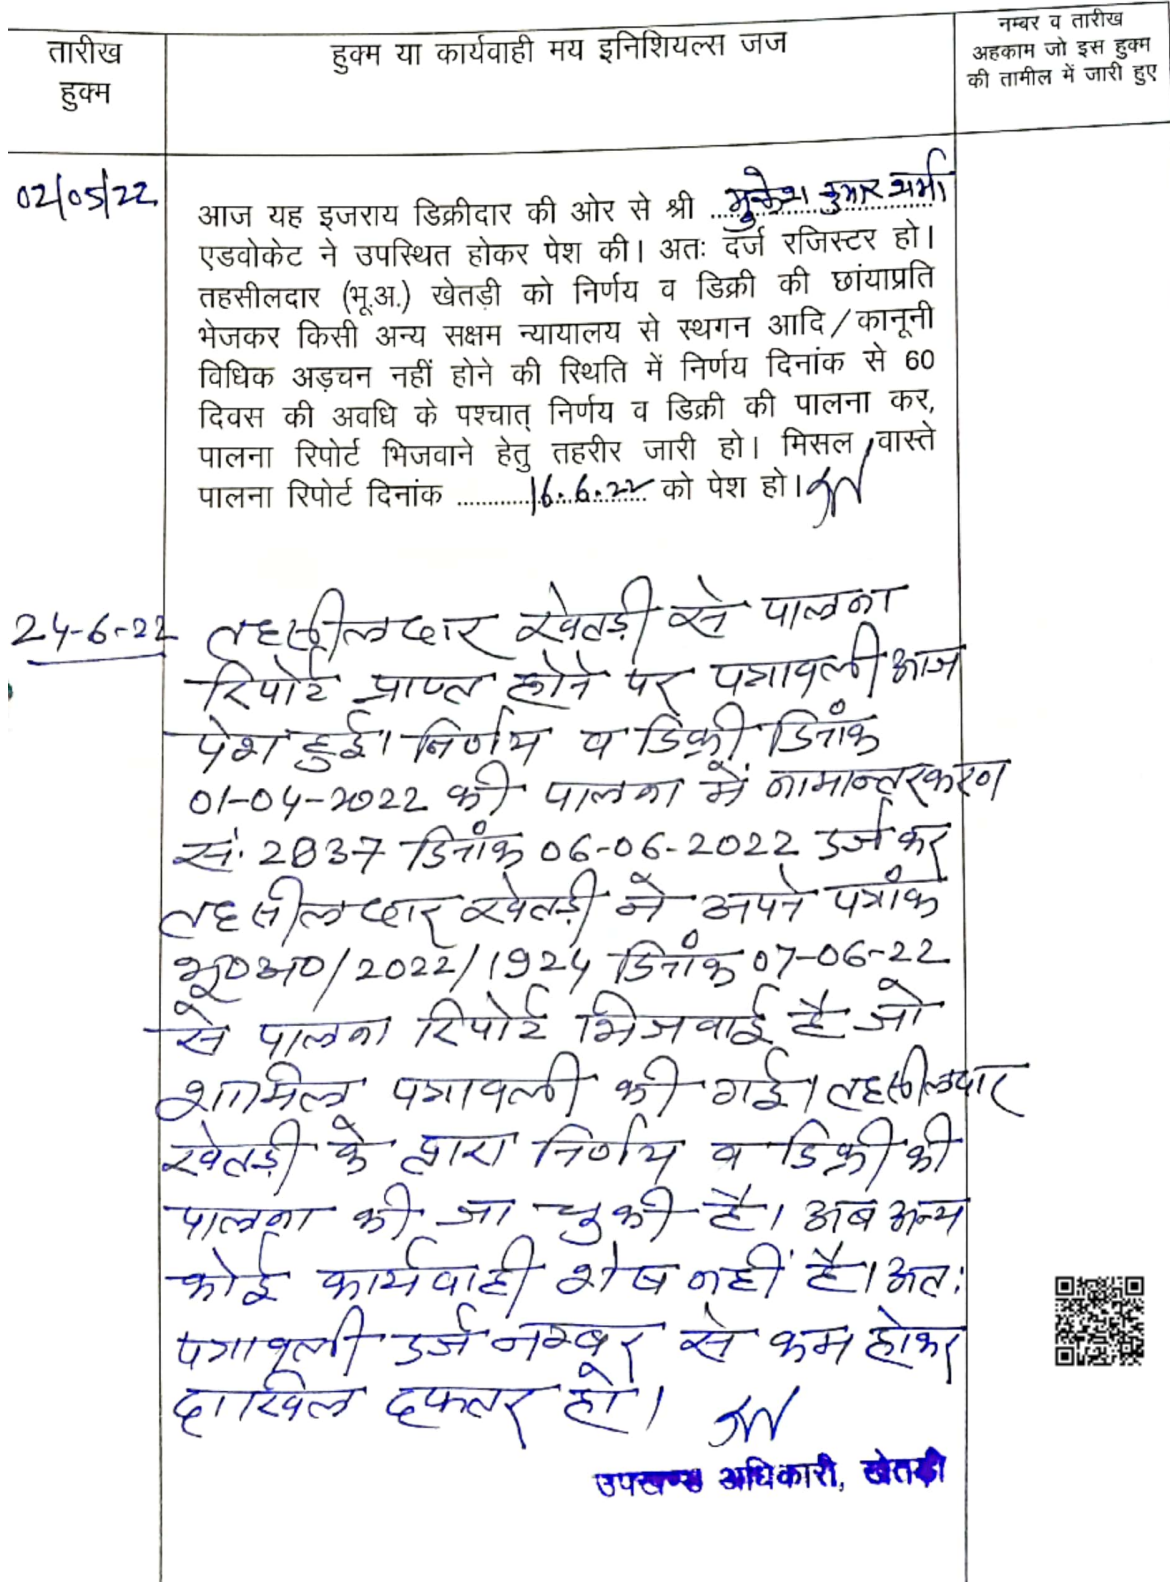 तारीख
हुक्म
हुक्म या कार्यवाही मय इनिशियल्स जज
नम्बर व तारीख
अहकाम जो इस हुक्म
की तामील में जारी हुए
02/05/22
आज यह इजराय डिक्रीदार की ओर से श्री ..मुकेश कुमार शर्मा
एडवोकेट ने उपस्थित होकर पेश की। अतः दर्ज रजिस्टर हो।
तहसीलदार (भू.अ.) खेतड़ी को निर्णय व डिक्री की छांयाप्रति
भेजकर किसी अन्य सक्षम न्यायालय से स्थगन आदि/कानूनी
विधिक अड़चन नहीं होने की स्थिति में निर्णय दिनांक से 60
दिवस की अवधि के पश्चात् निर्णय व डिक्री की पालना कर,
पालना रिपोर्ट भिजवाने हेतु तहरीर जारी हो। मिसल वास्ते
पालना रिपोर्ट दिनांक ...........16.6.22 को पेश हो।
24-6-22
तहसीलदार खेतड़ी से पालना
रिपोर्ट प्राप्त होने पर पत्रावली आज
पेश हुई। निर्णय व डिक्री दिनांक
01-04-2022 की पालना में नामान्तरकरण
सं. 2837 दिनांक 06-06-2022 दर्ज कर
तहसीलदार खेतड़ी ने अपने पत्रांक
भू०अ०/2022/1924 दिनांक 07-06-22
से पालना रिपोर्ट भिजवाई है जो
शामिल पत्रावली की गई। तहसीलदार
खेतड़ी के द्वारा निर्णय व डिक्री की
पालना की जा चुकी है। अब अन्य
कोई कार्यवाही शेष नहीं है। अतः
पत्रावली दर्ज नम्बर से कम होकर
दाखिल दफ्तर हो।
उपखण्ड अधिकारी, खेतड़ी